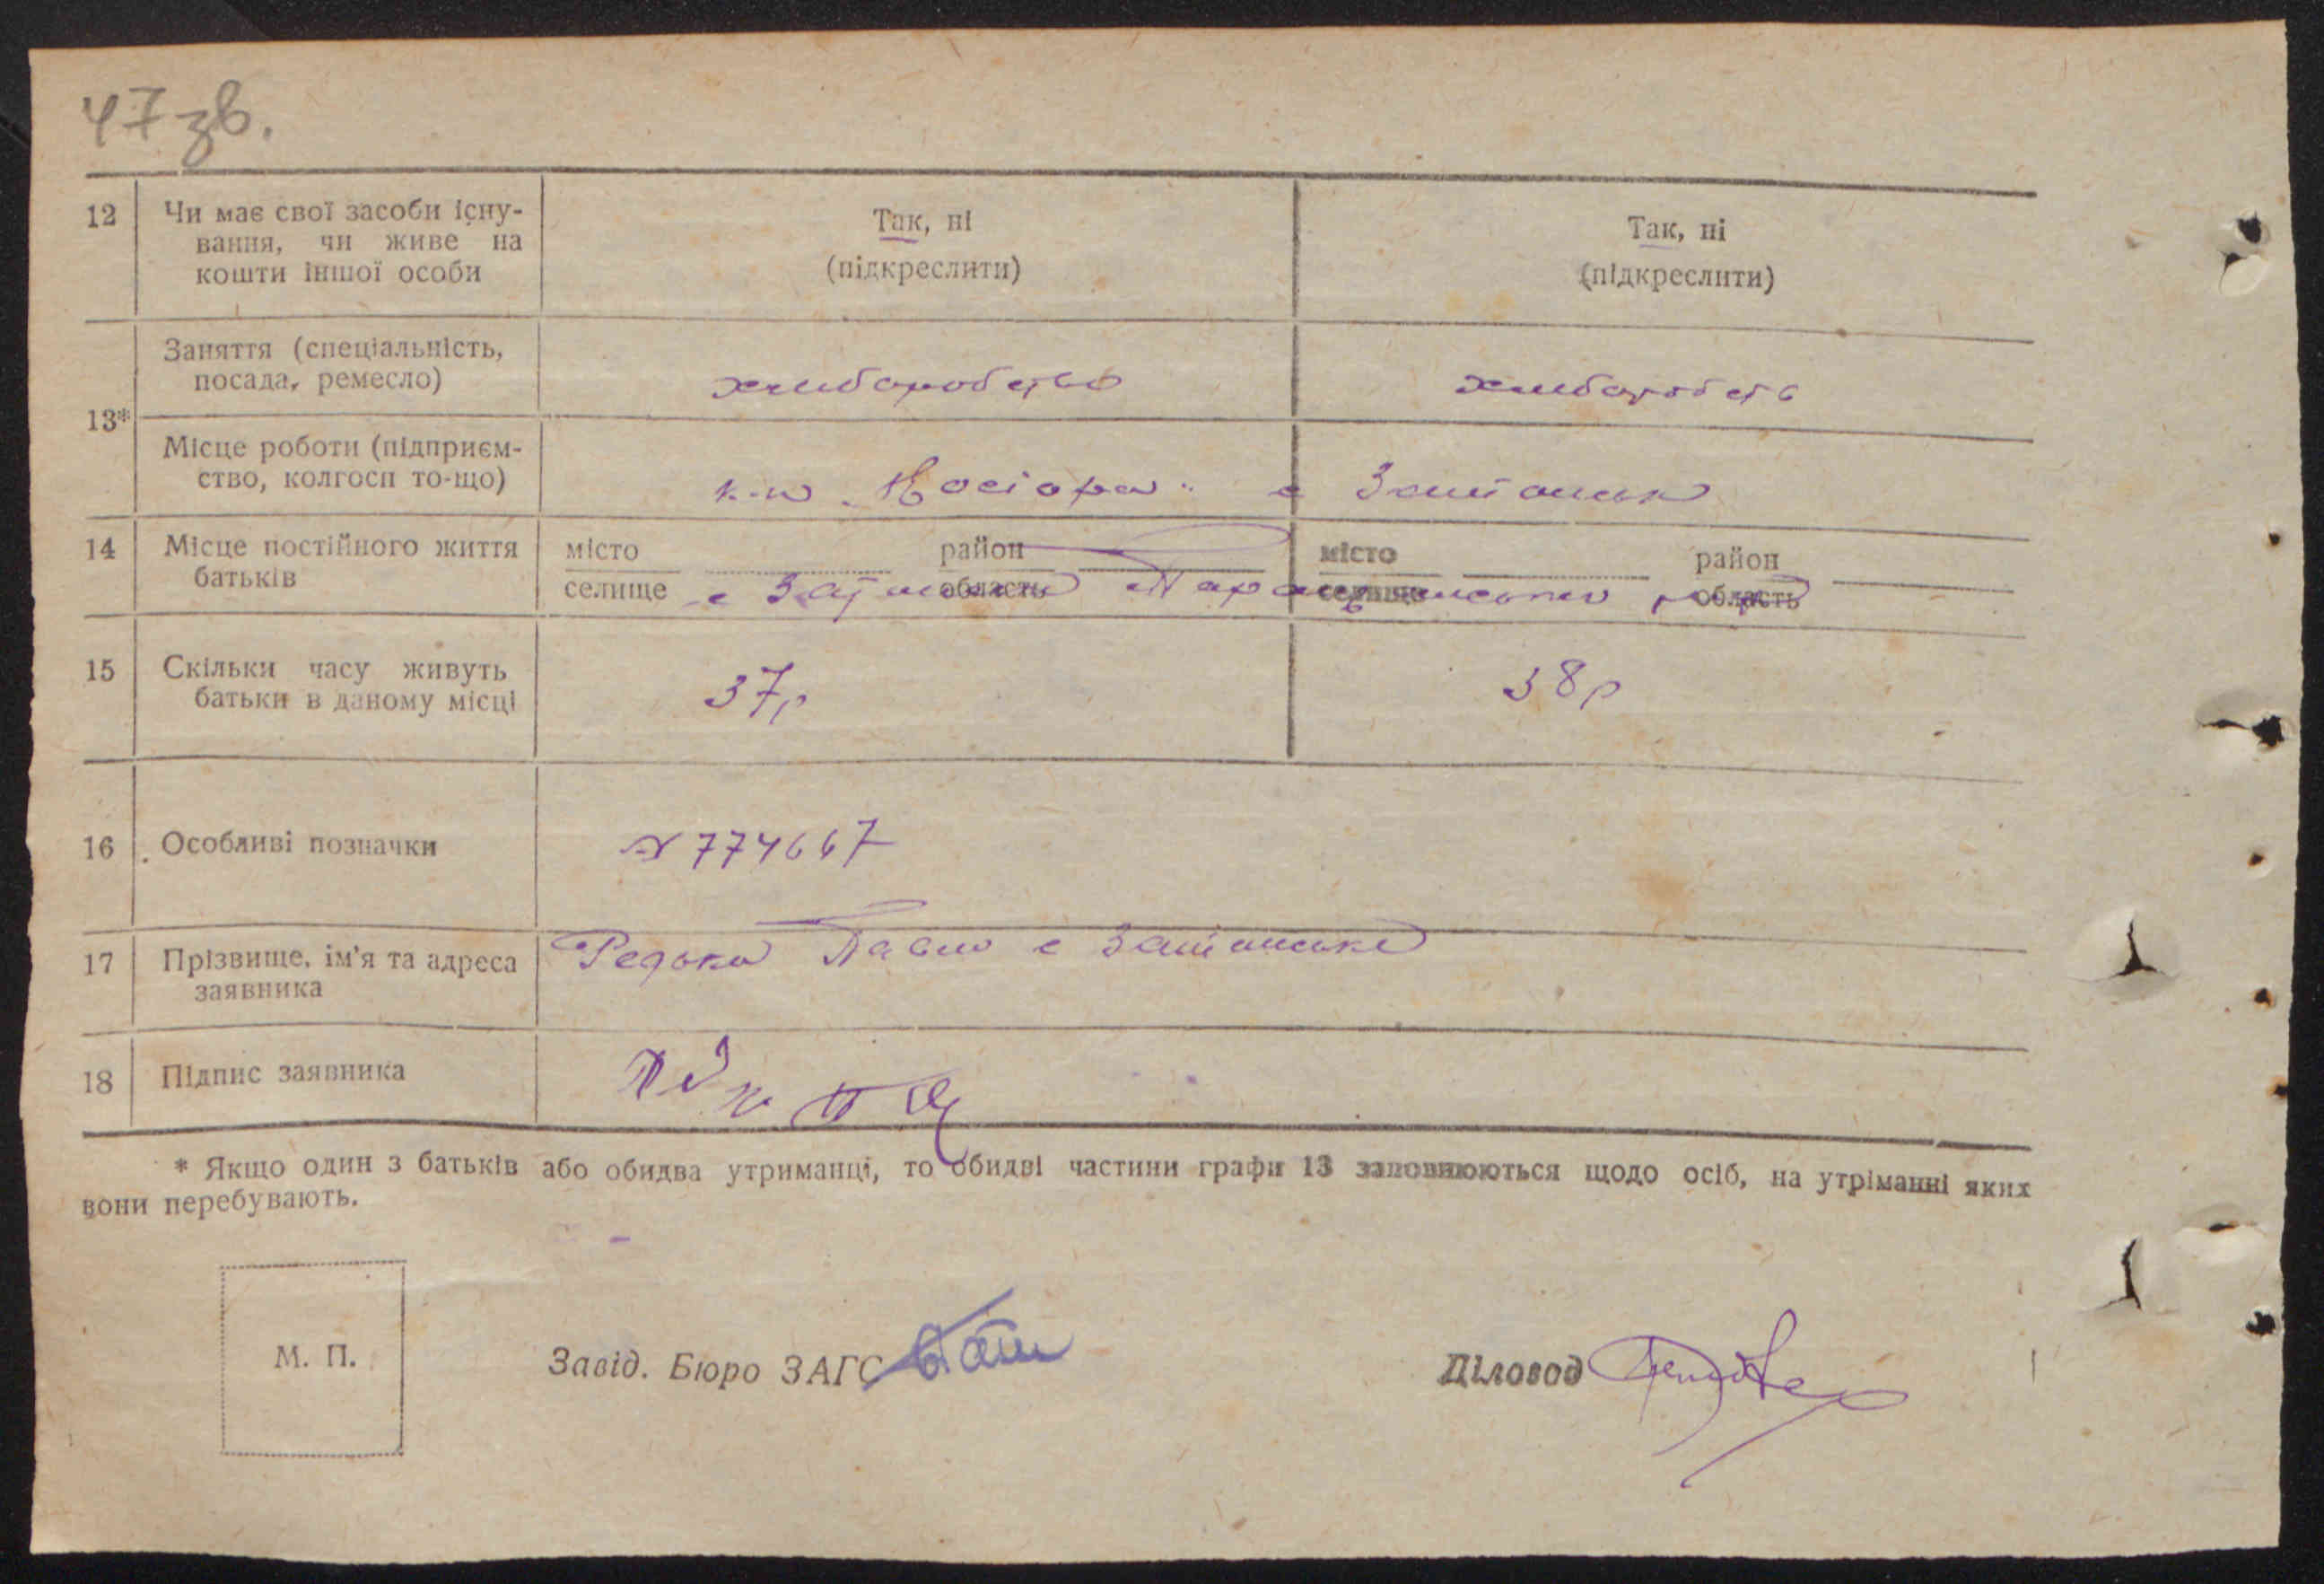 47 зв.
12
Чи має свої засоби існу-
вання, чи живе на
кошти іншої особи
Так, ні
(підкреслити)
Так, ні
(підкреслити)
13*
Заняття (спеціальність,
посада, ремесло)
хлиборобство
хлиборобств
Місце роботи (підприєм-
ство, колгосп то-що)
к-п „Косіора"
с
14
Місце постійного життя
батьків
місто
селище
район
область
місто
селище
район
область
с
15
Скільки часу живуть
батьки в даному місці
37р
38р
16
Особливі позначки
№ 774667
17
Прізвище, ім'я та адреса
заявника
Редько Павло с
18
Підпис заявника
* Якщо один з батьків або обидва утриманці, то обидві частини графи 13 заповнюються щодо осіб, на утріманні яких
вони перебувають.
М. П.
Завід. Бюро ЗАГС
Діловод